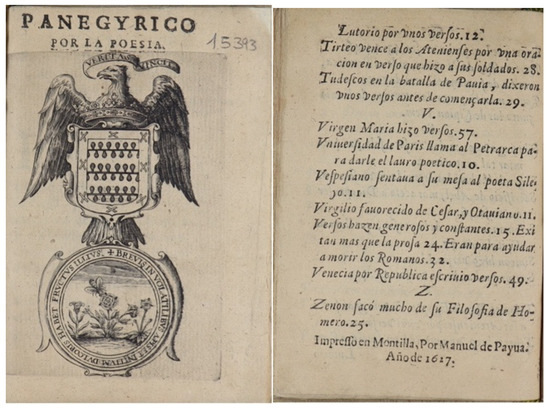 PANEGYRICO
POR LA POESIA.
15393
VERITAS VINCIT
+ BREVIS IN VOLATILIBVS APES ET INITIVM DVLCORIS HABET FRVCTVS ILLIVS.
Lutorio por vnos versos.12.
Tirteo vence a los Atenienses por vna ora
cion en verso que hizo a sus soldados. 28.
Tudescos en la batalla de Pauia, dixeron
vnos versos antes de començarla. 29.
V.
Virgen Maria hizo versos.57.
Vniuersidad de Paris llama al Petrarca pa
ra darle el lauro poetico.10.
Vespesiano sentaua a su mesa al poeta Sile
yo.11.
Virgilio fauorecido de Cesar, y Otauiano.11.
Versos hazen generosos y constantes.15. Exi
tan mas que la prosa 24. Eran para ayudar
a morir los Romanos.32.
Venecia por Republica escriuio versos. 49.
Z.
Zenon sacó mucho de su Filosofia de Ho-
mero.25.
Impresso en Montilla, Por Manuel de Payua.
Año de 1617.